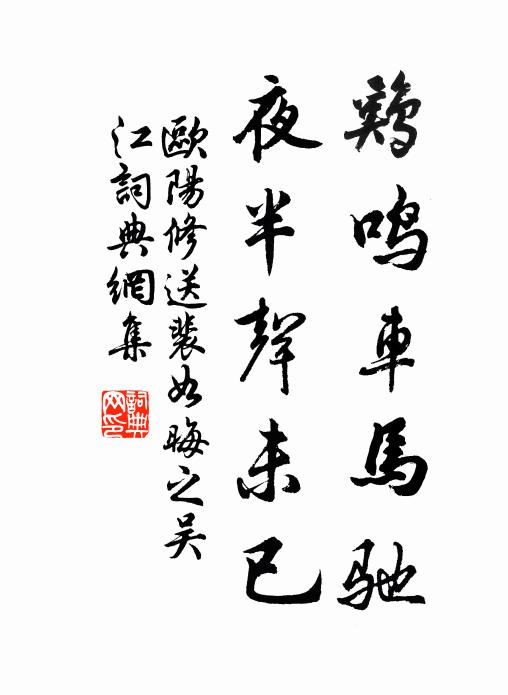 鷄鳴車馬馳
夜半聲未已
歐陽修送裴如晦之吴
江詞典網集
詞典网印